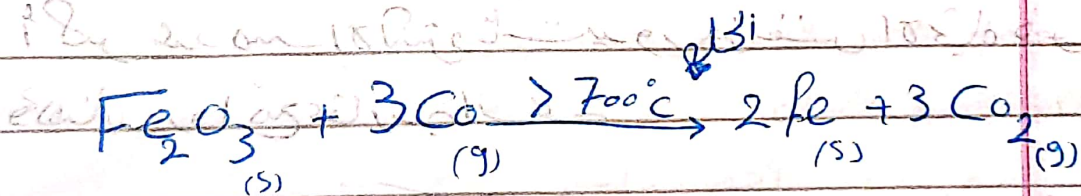 Fe₂O₃(s) + 3Co(g) > 700°C → 2fe(s) + 3Co₂(g)